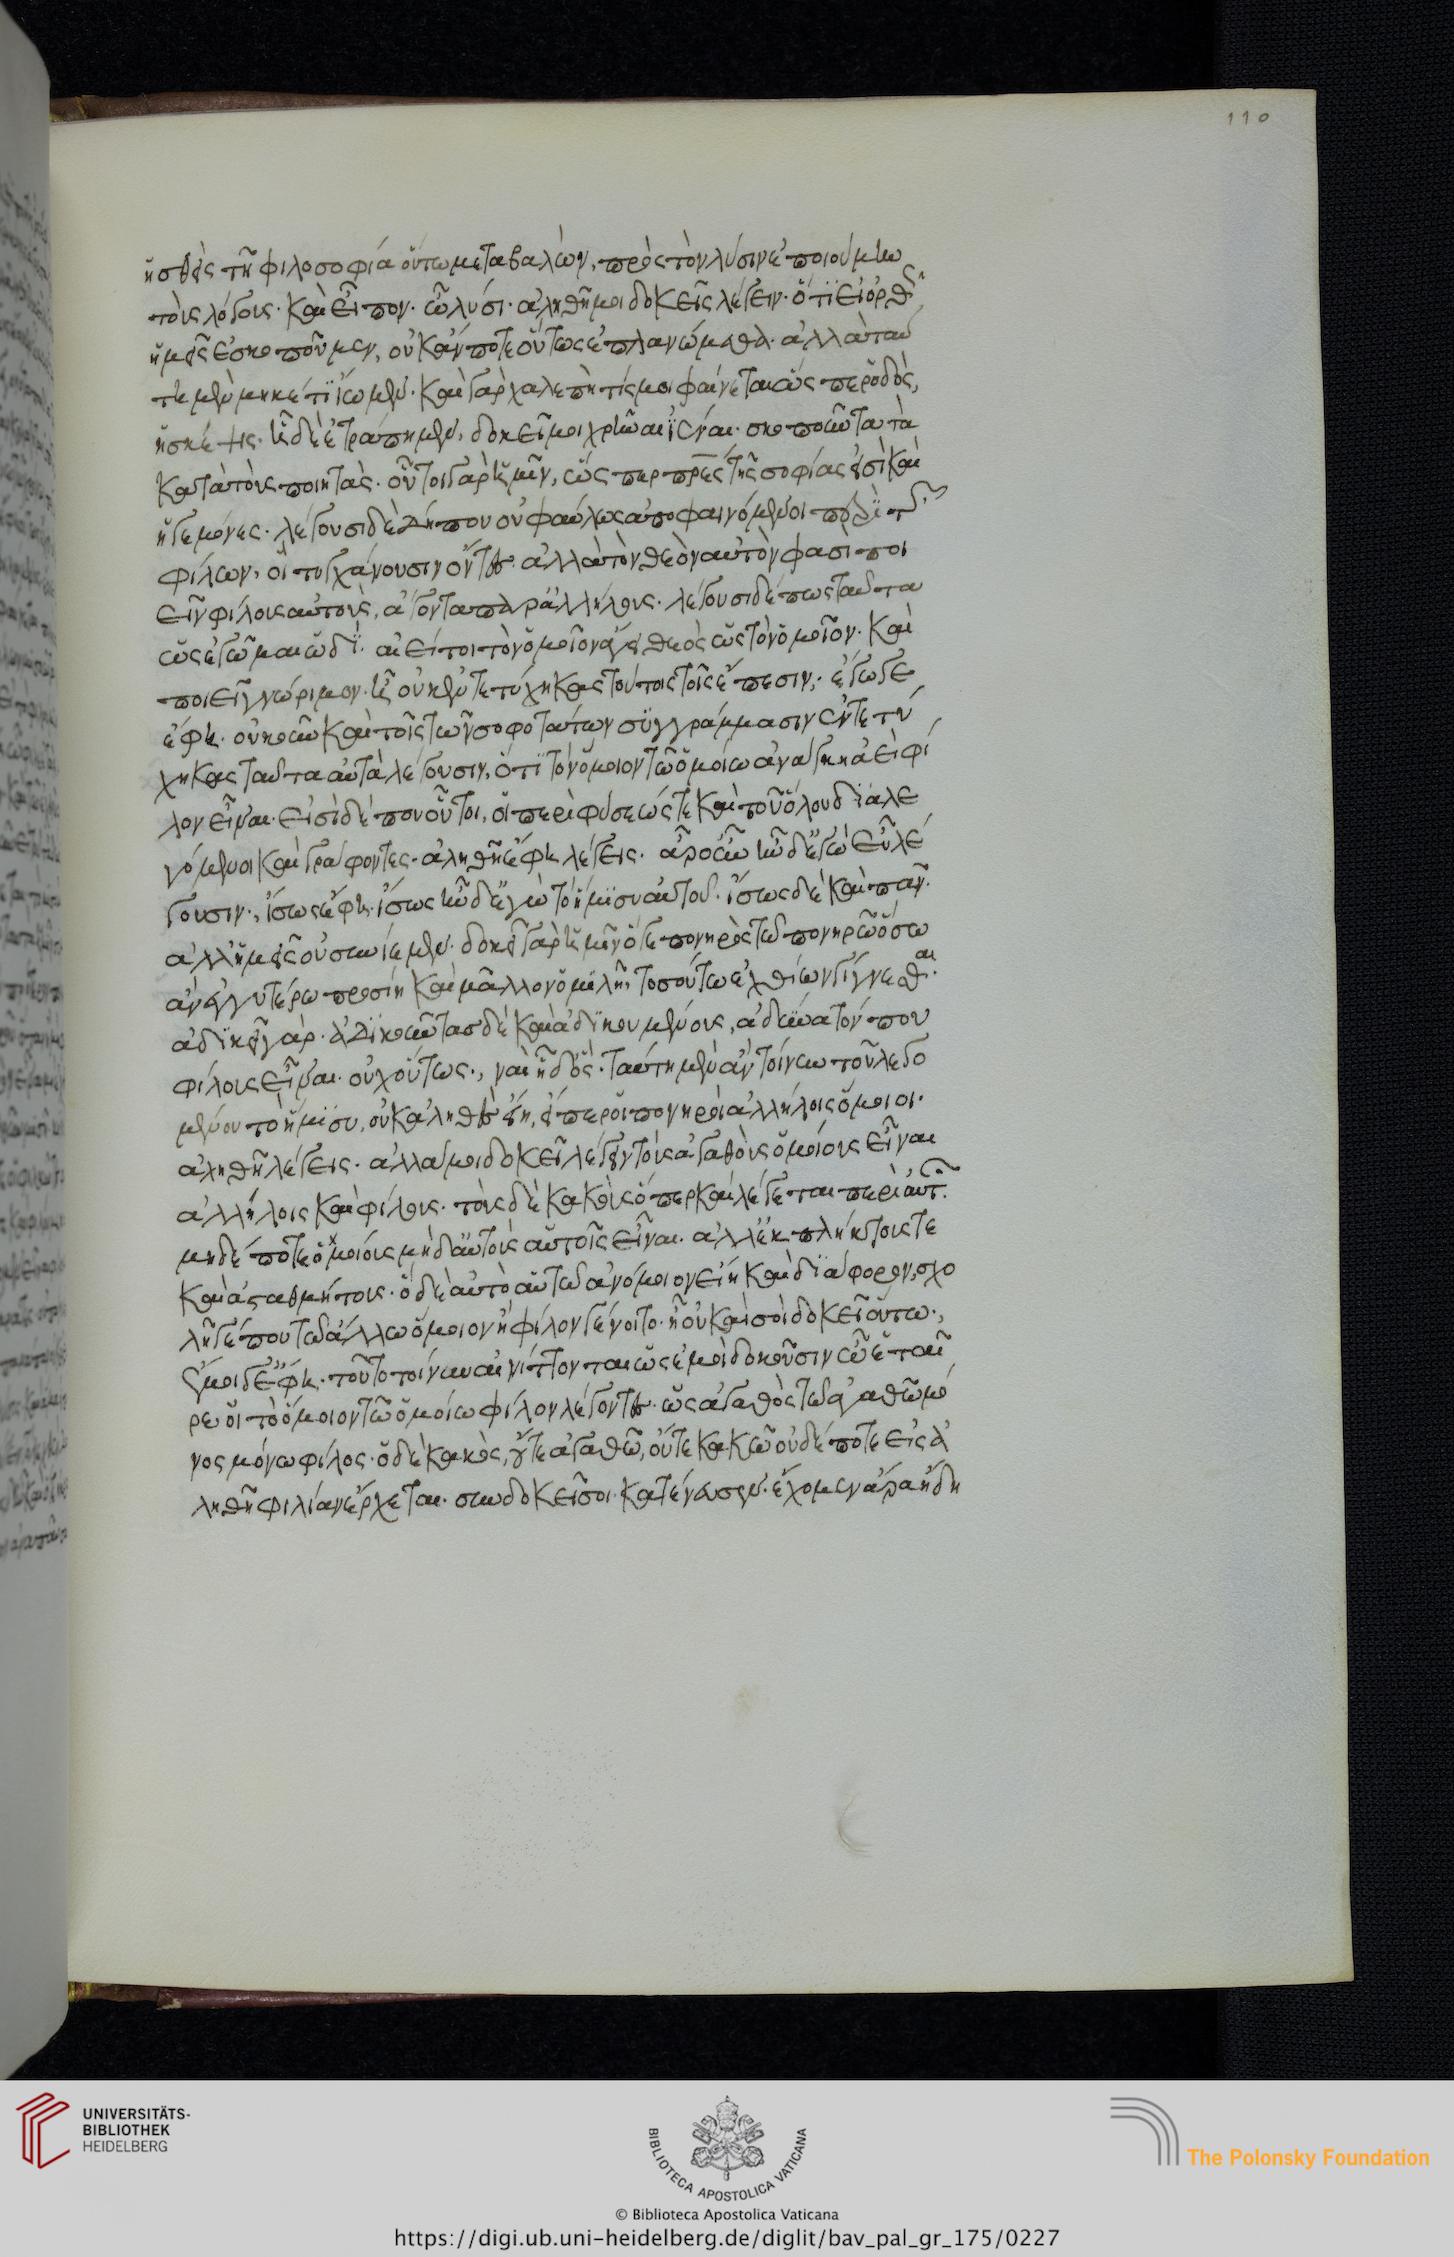 110
ἡσθεὶς τῆ φιλοσοφία οὕτω μεταβαλὼν, πρὸς τὸν λύσιν ἐποιούμην
τοὺς λόγους. καὶ εἶπον. ὦ λύσι. ἀληθῆ μοι δοκεῖς λέγειν. ὅτι εἰ ὀρθῶς
ἡμεῖς ἐσκοποῦμεν, οὐκ ἄν ποτε οὕτως ἐπλανώμεθα. ἀλλὰ ταύ
τη μὲν μηκέτι ἴωμεν. καὶ γὰρ χαλεπή τίς μοι φαίνεται ὥσπερ ὁδὸς,
ἡ σκέψις. ἧ δὲ ἐτράπημεν, δοκεῖ μοι χρῆναι ἰέναι. σκοποῦντα τὰ
κατὰ τοὺς ποιητάς. οὗτοι γὰρ ἡμῖν, ὥσπερ πρες τῆς σοφίας εἰσὶ καὶ
ἡγεμόνες. λέγουσι δὲ δήπου οὐ φαύλως ἀποφαινόμενοι περὶ τῶν
φίλων, οἳ τυγχάνουσιν ὄντες. ἀλλὰ τὸν θεὸν αὐτὸν φασὶ ποι
εῖν φίλους αὐτοὺς, ἄγοντα παρ' ἀλλήλους. λέγουσι δέ πως ταῦτα
ὡς ἐγῶμαι ὡδί. αἰεί τοι τὸν ὁμοῖον ἄγει θεὸς ὡς τὸν ὁμοῖον. καὶ
ποιεῖ γνώριμον. ἢ οὐκ ἐντετύχηκας τούτοις τοῖς ἔπεσιν; ἔγωγε
ἔφη. οὐκοῦν καὶ τοῖς τῶν σοφοτάτων συγγράμμασιν ἐντετύ
χηκας ταῦτα αὐτὰ λέγουσιν, ὅτι τὸν ὅμοιον τῶ ὁμοίω ἀνάγκη ἀεὶ φί
λον εἶναι. εἰσὶ δέ που οὗτοι, οἱ περὶ φύσεώς τε καὶ τοῦ ὅλου διαλε
γόμενοι καὶ γράφοντες. ἀληθῆ ἔφη λέγεις. ἆρ' οὖν ἦν δ' ἐγὼ εὖ λέ
γουσιν; ἴσως ἔφη. ἴσως ἦν δ' ἐγὼ τὸ ἥμισυ αὐτοῦ. ἴσως δὲ καὶ πᾶν.
ἀλλ' ἡμεῖς οὐ συνίεμεν. δοκεῖ γὰρ ἡμῖν ὅ γε πονηρὸς τῶ πονηρῶ ὅσω
ἂν ἐγγυτέρω προσίη καὶ μᾶλλον ὁμιλῆ, τοσούτω ἐχθίων γίγνεσθαι.
ἀδικεῖ γὰρ. ἀδικοῦντας δὲ καὶ ἀδικουμένους, ἀδύνατόν που
φίλους εἶναι. οὐχ οὕτως; ναὶ ἦ δ' ὅς. ταύτη μὲν ἂν τοίνυν τοῦ λεγο
μένου τὸ ἥμισυ, οὐκ ἀληθὲς εἴη, εἴπερ οἱ πονηροὶ ἀλλήλοις ὅμοιοι.
ἀληθῆ λέγεις. ἀλλά μοι δοκεῖ λέγειν τοὺς ἀγαθοὺς ὁμοίους εἶναι
ἀλλήλοις καὶ φίλους. τοὺς δὲ κακοὺς ὅπερ καὶ λέγεται περὶ αὐτῶν.
μηδέποτε ὁμοίους μηδ' αὐτοὺς αὑτοῖς εἶναι. ἀλλ' ἐκπλήκτους τε
καὶ ἀσταθμήτους. ὃ δὲ αὐτὸ αὑτῶ ἀνόμοιον εἴη καὶ διάφορον, σχο
λῆ γέ που τῶ ἄλλω ὅμοιον ἢ φίλον γένοιτο. ἢ οὐ καὶ σοὶ δοκεῖ οὕτω;
ἔμοιγε ἔφη. τοῦτο τοίνυν αἰνίττονται ὡς ἐμοὶ δοκοῦσιν ὦ ἑταῖ
ρε οἱ τὸ ὅμοιον τῶ ὁμοίω φίλον λέγοντες. ὡς ὁ ἀγαθὸς τῶ ἀγαθῶ μό
νος μόνω φίλος. ὁ δὲ κακὸς, οὔτε ἀγαθῶ, οὔτε κακῶ οὐδέποτε εἰς ἀ
ληθῆ φιλίαν ἔρχεται. συνδοκεῖ σοι. κατένευσεν. ἔχομεν ἄρα ἤδη
UNIVERSITÄTS-
BIBLIOTHEK
HEIDELBERG
BIBLIOTECA APOSTOLICA VATICANA
© Biblioteca Apostolica Vaticana
The Polonsky Foundation
https://digi.ub.uni-heidelberg.de/diglit/bav_pal_gr_175/0227